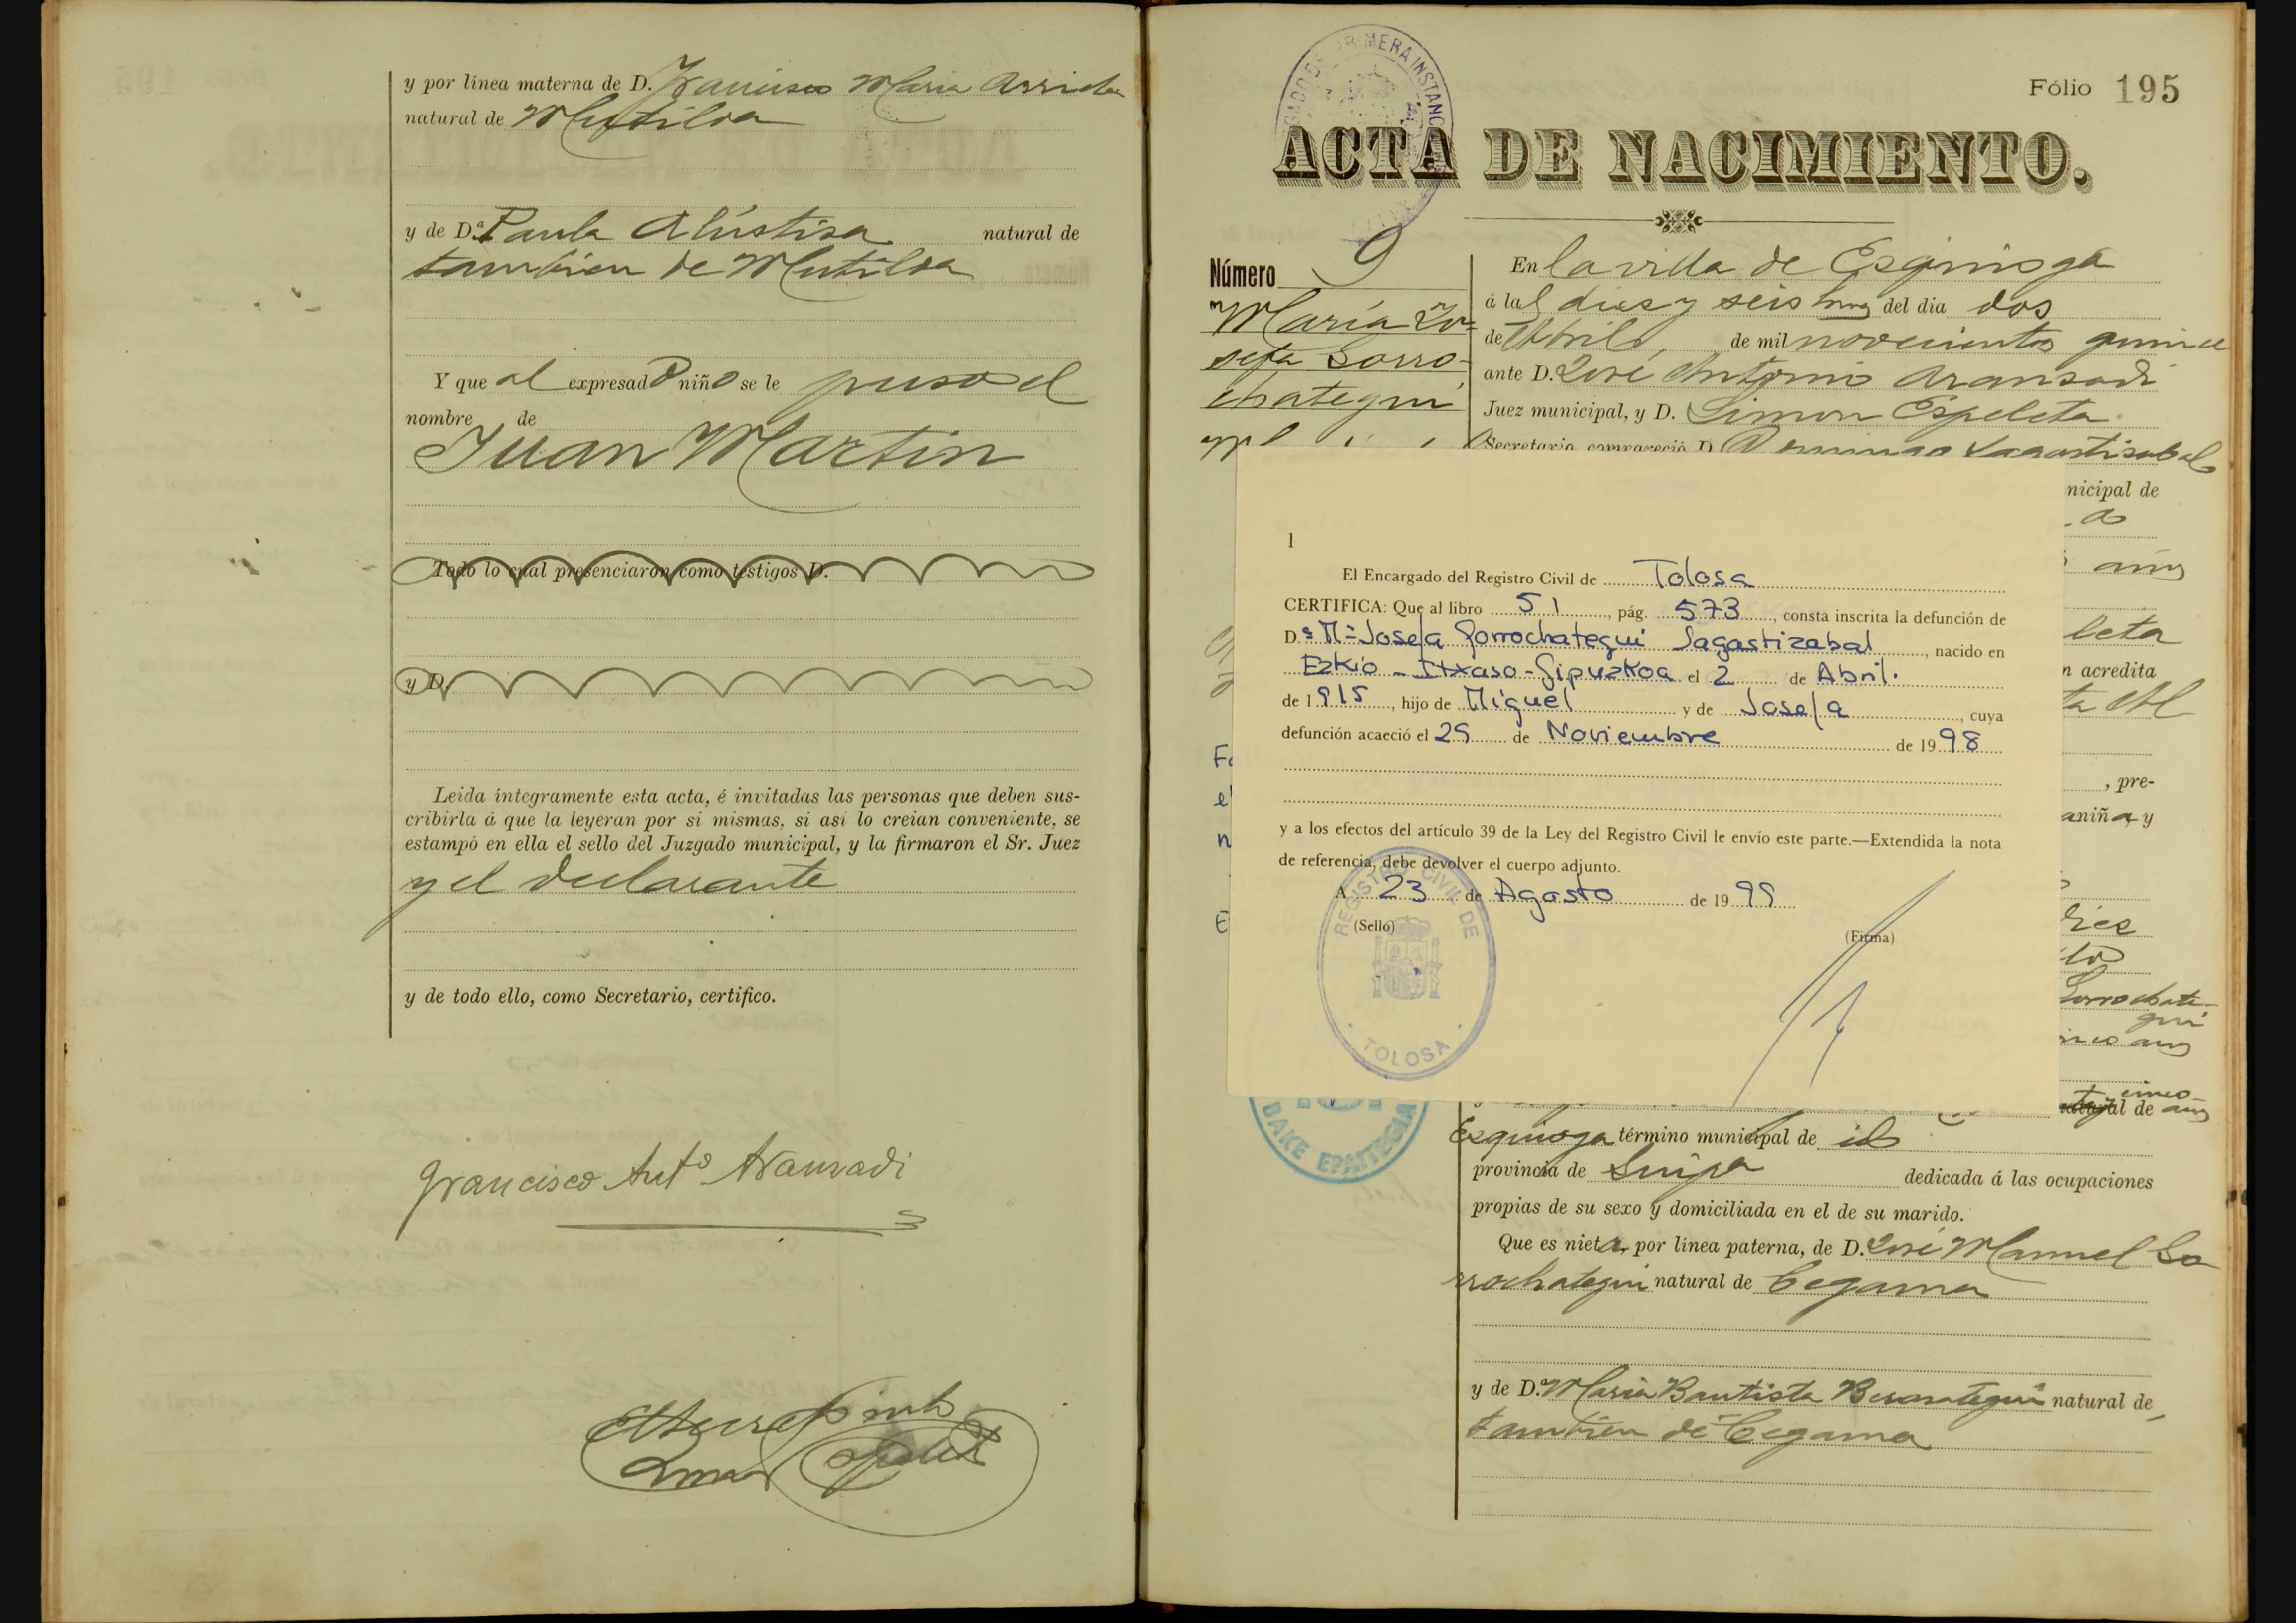 y por línea materna de D. Francisco María Arrieta
natural de Mutiloa
y de D.ª Paula Alústiza natural de
tambien de Mutiloa
Y que al expresado niño se le puso el
nombre de
Juan Martin
Todo lo cual presenciaron como testigos D.
y D.
Leida íntegramente esta acta, é invitadas las personas que deben sus-
cribirla á que la leyeran por si mismas, si así lo creían conveniente, se
estampó en ella el sello del Juzgado municipal, y la firmaron el Sr. Juez
y el declarante
y de todo ello, como Secretario, certifico.
Francisco Antº Aranzadi
Fólio 195
ACTA DE NACIMIENTO.
Número 9
María Jo-
sefa Gorro-
chategui
En la villa de Ezquioga
á las diez y seis horas del día dos
de Abril de mil novecientos quince
ante D. José Antonio Aranzadi
Juez municipal, y D. Simon Espeleta
Secretario, compareció D. Domingo Sagastizabal
nicipal de
años
leta
n acredita
, pre-
aniña y
Gorrochate-
gui
años
cinco
natural de años
1
El Encargado del Registro Civil de Tolosa
CERTIFICA: Que al libro 51, pág. 573, consta inscrita la defunción de
D.ª Mª Josefa Gorrochategui Sagastizabal, nacido en
Ezkio-Itxaso-Gipuzkoa el 2 de Abril.
de 1915, hijo de Miguel y de Josefa, cuya
defunción acaeció el 29 de Noviembre de 1998
y a los efectos del artículo 39 de la Ley del Registro Civil le envío este parte.—Extendida la nota
de referencia, debe devolver el cuerpo adjunto.
A 23 de Agosto de 1999
(Sello)
(Firma)
REGISTRO CIVIL DE
TOLOSA
BAKE EPAITEGIA
Ezquioga término municipal de id
provincia de Guipª dedicada á las ocupaciones
propias de su sexo y domiciliada en el de su marido.
Que es nieta, por línea paterna, de D. José Manuel Go
rrochategui natural de Cegama
y de D.ª María Bautista Berasategui natural de
tambien de Cegama